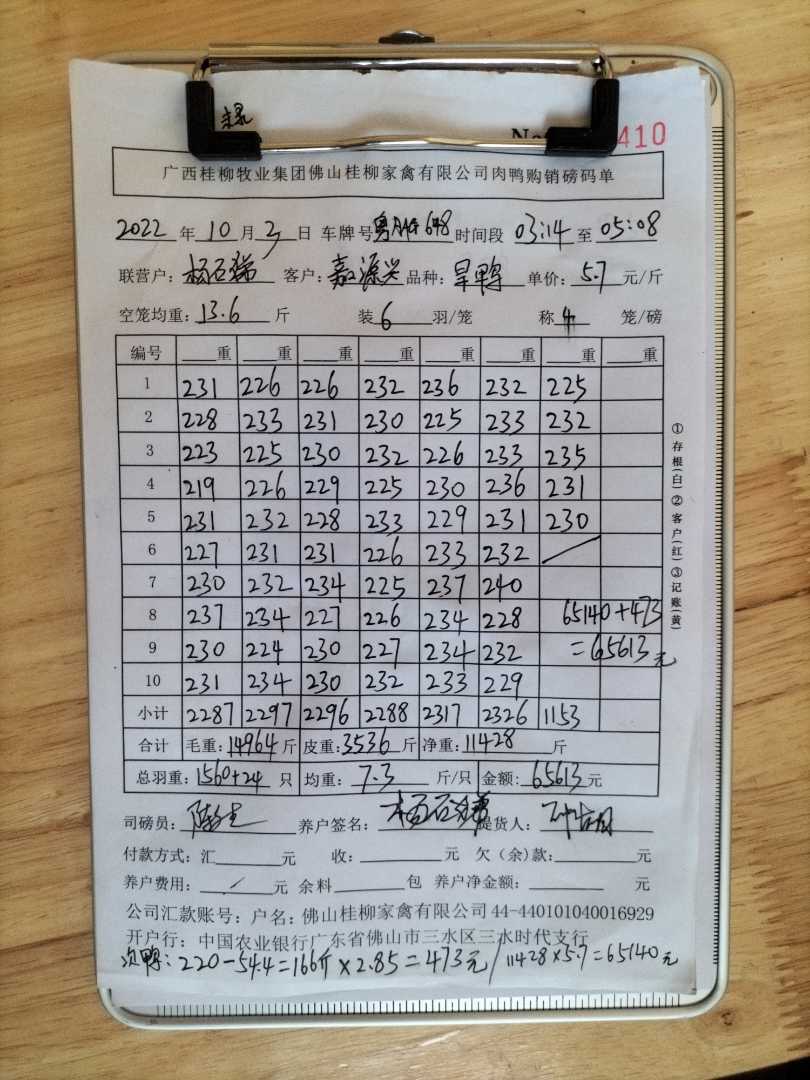 No 410
广西桂柳牧业集团佛山桂柳家禽有限公司肉鸭购销磅码单
2022年10月3日 车牌号 648 时间段 03:14至05:08
联营户: 杨石娣 客户: 嘉源兴 品种: 旱鸭 单价: 5.7元/斤
空笼均重: 13.6斤 装6羽/笼 称4笼/磅
编号 重 重 重 重 重 重 重 重
1 231 226 226 232 236 232 225
2 228 233 231 230 225 233 232
3 223 225 230 232 226 233 235
4 219 226 229 225 230 236 231
5 231 232 228 233 229 231 230
6 227 231 231 226 233 232 /
7 230 232 234 225 237 240
8 237 234 227 226 234 228 65140+473
9 230 224 230 227 234 232 =65613元
10 231 234 230 232 233 229
小计 2287 2297 2296 2288 2317 2326 1153
合计 毛重: 14964斤 皮重: 3536斤 净重: 11428斤
总羽重: 1560+24只 均重: 7.3斤/只 金额: 65613元
司磅员: 养户签名: 杨石娣 提货人:
付款方式: 汇 元 收: 元 欠(余)款: 元
养户费用: / 元 余料 包 养户净金额: 元
公司汇款账号: 户名: 佛山桂柳家禽有限公司 44-440101040016929
开户行: 中国农业银行广东省佛山市三水区三水时代支行
次鸭: 220-54.4=166斤×2.85=473元/11428×5.7=65140元
①存根(白)②客户(红)③记账(黄)